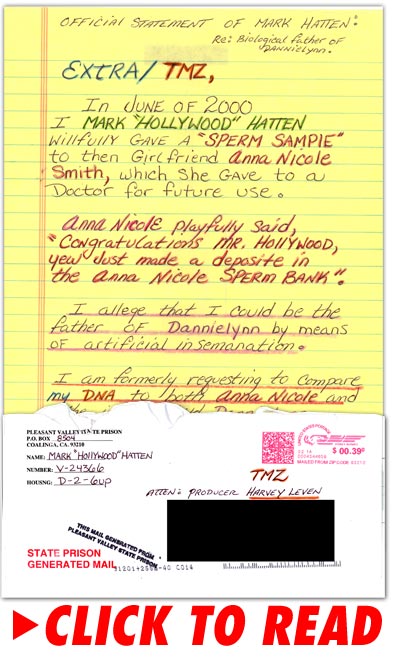 OFFICIAL STATEMENT OF MARK HATTEN:
Re: Biological father of
DANNIELYNN.
EXTRA/TMZ,
In JUNE OF 2000
I MARK "HOLLYWOOD" HATTEN
willfully GAVE A "SPERM SAMPlE"
to then Girlfriend Anna Nicole
Smith, which She GAVE to a
Doctor for future use.
Anna Nicole playfully said,
"Congratulations MR. Hollywood,
yew Just made a deposite in
the Anna Nicole SPERM BANK".
I allege that I could be the
father OF Dannielynn by means
of artificial insemanation.
I am formerly requesting to compare
my DNA to both Anna Nicole and
PLEASANT VALLEY STATE PRISON
P.O. BOX 8504
COALINGA, CA. 93210
NAME: MARK "HOllywood" HATTEN
NUMBER: V-24366
HOUSNG: D-2-6up
$ 00.39
MAILED FROM ZIP CODE
TMZ
ATTEN: PRODUCER HARVEY LEVEN
THIS MAIL GENERATED FROM
PLEASANT VALLEY STATE PRISON
STATE PRISON
GENERATED MAIL
CLICK TO READ